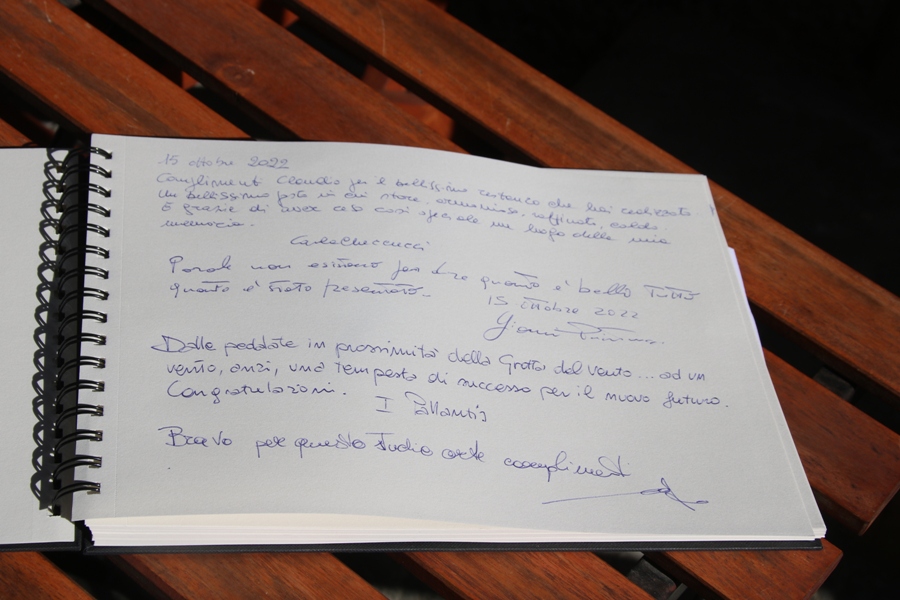 15 ottobre 2022
Complimenti Claudio per il bellissimo restauro che hai realizzato.
Un bellissimo posto in cui stare, armonioso, raffinato, caldo.
E grazie di aver reso così speciale un luogo della mia
memoria.
Carla Checcucci
Parole non esistono per dire quanto è bello tutto
quanto è stato presentato.
15 ottobre 2022
Dalle peddate in prossimità della Grotta del vento... ad un
vento, anzi, una tempesta di successo per il nuovo futuro.
Congratulazioni.
I Pallantis
Bravo per questo studio arte complimenti